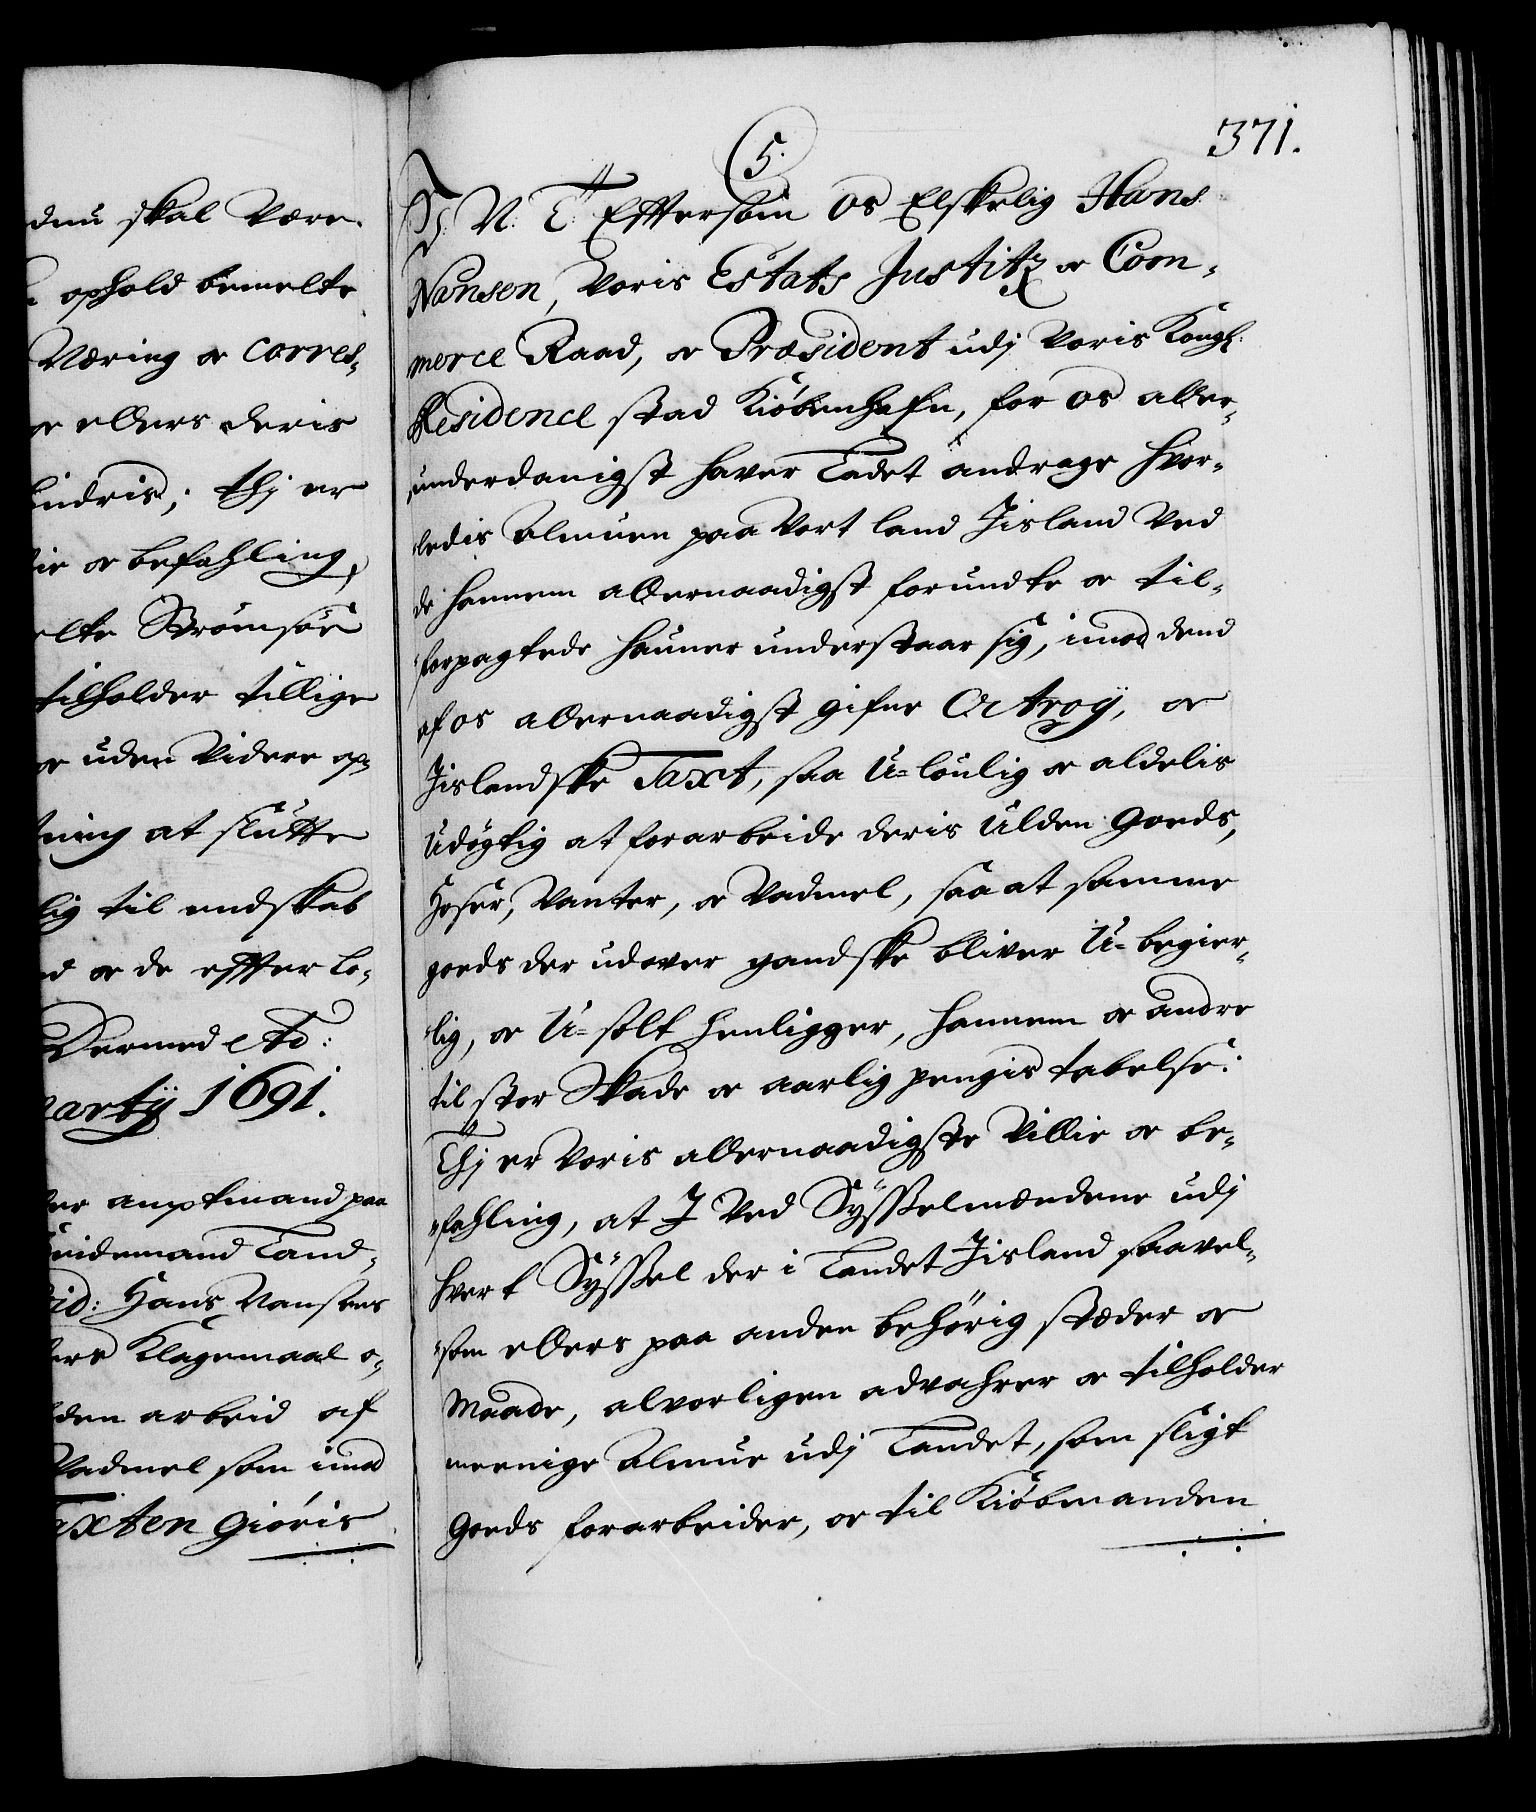 dnu skal Være
ophold bemelte
Næring oc corres-
oc ellers deris
hindris; thj er
lie oc befahling,
elte Strømsöe
tilholder tillige
oc uden Videre op-
ning at slutte
lig til endskab
d oc de effter lo-
Dermed etc:
Marty 1691.
amptmand paa
Land-
Hans Nansens
Klagemaal o-
lden arbeid af
Vadmel som imod
Taxten giöris
371.
5.
C. V. G: V. T. Efftersom Os Elskelig Hans
Nansen, Voris Estats Justitz oc Com-
merce Raad, oc Præsident udj Voris Kongl:
Residence stad Kiöbenhafn, for Os aller-
underdanigst haver Ladet andrage hvor-
ledis Almuen paa Vort land Jisland Ved
de hannem allernaadigst forundte oc til-
forpagtede haffner understaar sig, imod dend
af os allernaadigst gifne Octroy, oc
Jislandske Taxt, saa U-loulig oc aldelis
Udögtig at forarbeide deris Ulden Goeds,
Hoser, Vanter, oc Vadmel, saa at samme
goeds der udover gandske bliver U-begier-
lig, oc U-solt henligger, hannem oc andre
til stor Skade oc aarlig pengis tabelse:
Thj er Voris allernaadigste Villie oc be-
fahling, at J Ved Sysselmændene udj
hvert Syssel der i Landet Jisland saavel-
som ellers paa anden behörig stæder oc
Maade, alvorligen advahrer oc tilholder
meenige Almue udj Landet, som sligt
Goeds forarbeider, oc til Kiöbmanden